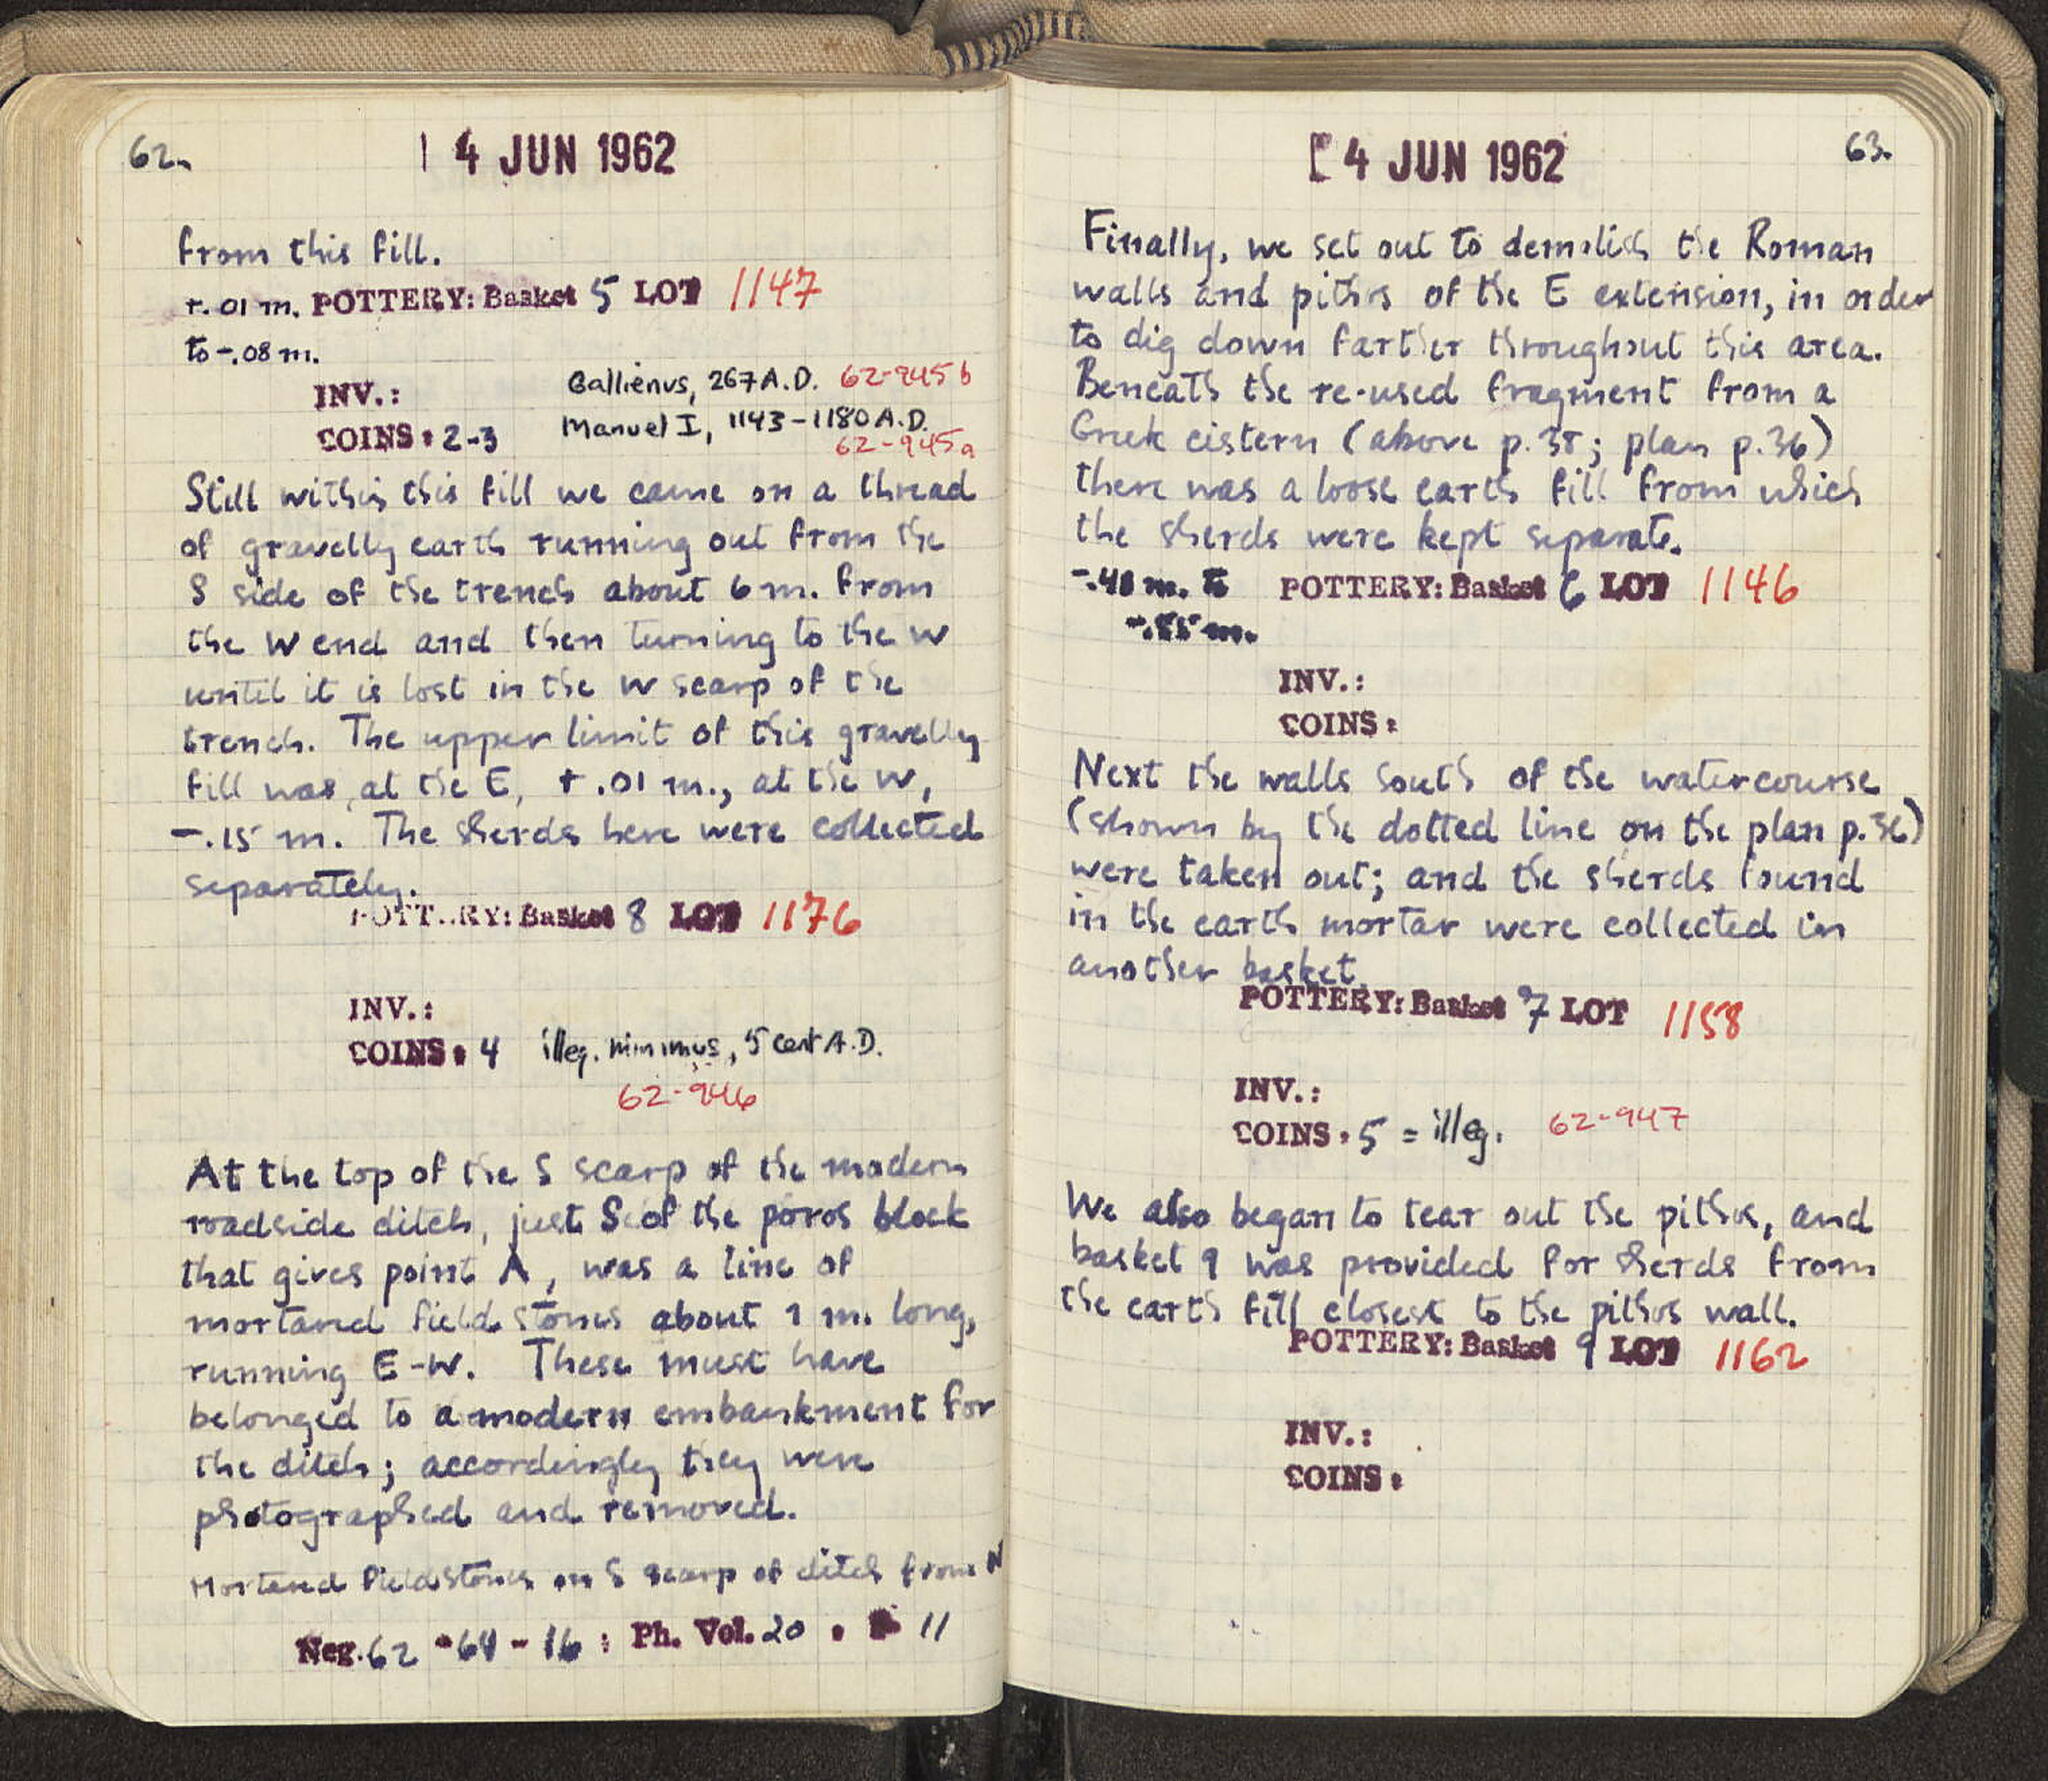 62.
14 JUN 1962
from this fill.
+.01 m. POTTERY: Basket 5 LOT 1147
to -.08 m.
Gallienus, 267 A.D. 62-945 b
INV.:
Manuel I, 1143-1180 A.D.
COINS: 2-3
62-945a
Still within this fill we came on a thread
of gravelly earth running out from the
S side of the trench about 6 m. from
the W end and then turning to the W
until it is lost in the W scarp of the
trench. The upper limit of this gravelly
fill was, at the E, +.01 m., at the W,
-.15 m. The sherds here were collected
separately.
POTTERY: Basket 8 LOT 1176
INV.:
COINS: 4 illeg. minimus, 5 cent A.D.
62-946
At the top of the S scarp of the modern
roadside ditch, just S of the poros block
that gives point A, was a line of
mortared field stones about 1 m. long,
running E-W. These must have
belonged to a modern embankment for
the ditch; accordingly they were
photographed and removed.
Mortared fieldstones on S scarp of ditch from N
Neg. 62-64-16: Ph. Vol. 20. 11
63.
14 JUN 1962
Finally, we set out to demolish the Roman
walls and pithos of the E extension, in order
to dig down farther throughout this area.
Beneath the re-used fragment from a
Greek cistern (above p.38; plan p.36)
there was a loose earth fill from which
the sherds were kept separate.
-.40 m. to POTTERY: Basket 6 LOT 1146
-.55 m.
INV.:
COINS:
Next the walls south of the watercourse
(shown by the dotted line on the plan p.36)
were taken out; and the sherds found
in the earth mortar were collected in
another basket.
POTTERY: Basket 7 LOT 1158
INV.:
COINS. 5 = illeg. 62-947
We also began to tear out the pithos, and
basket 9 was provided for sherds from
the earth fill closest to the pithos wall.
POTTERY: Basket 9 LOT 1162
INV.:
COINS: